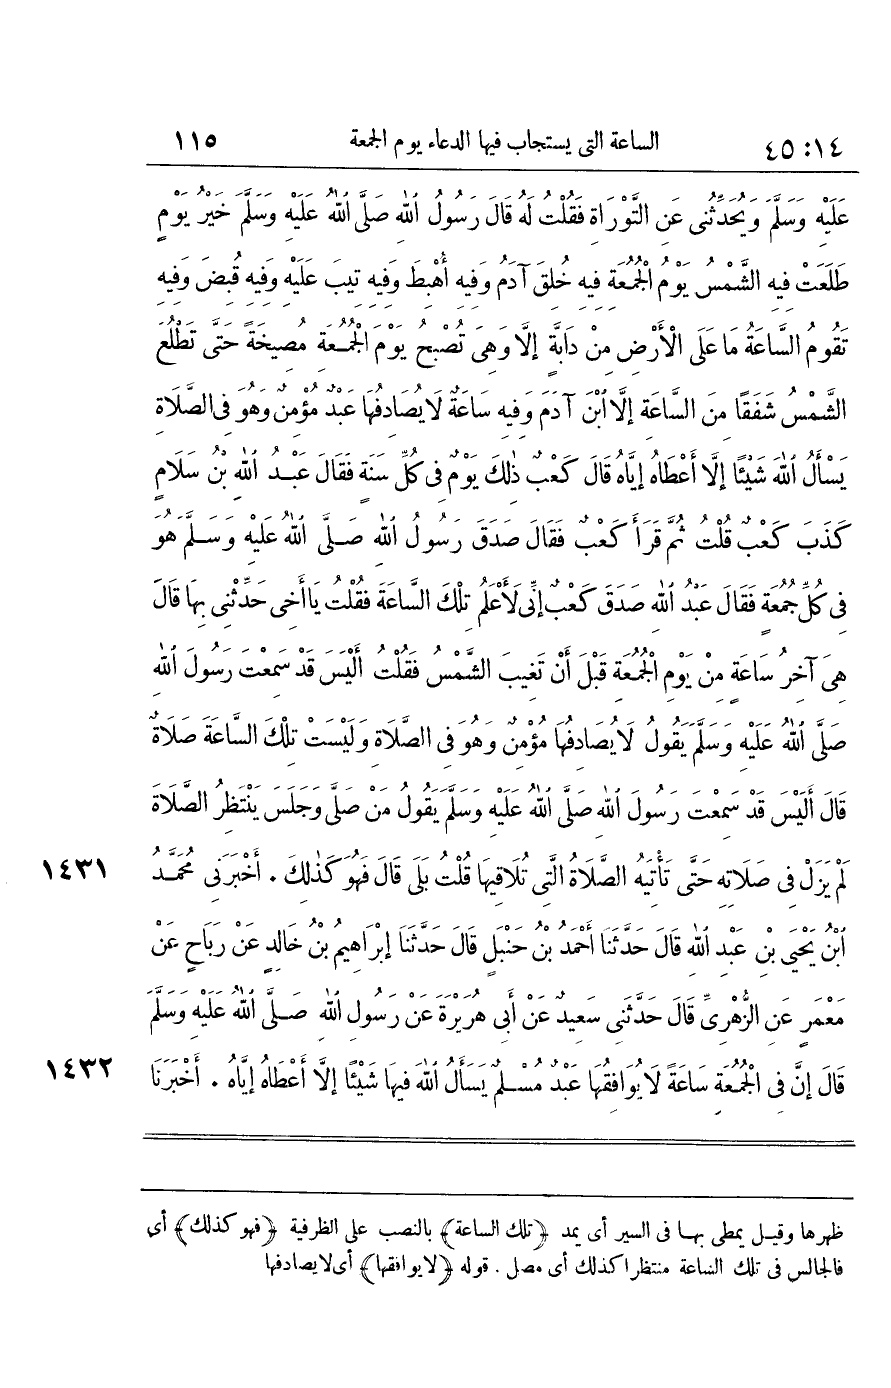 ١٤ : ٤٥ الساعة التى يستجاب فيها الدعاء يوم الجمعة ١١٥
عَلَيْهِ وَسَلَّمَ وَيُحَدِّثُنِى عَنِ التَّوْرَاةِ فَقُلْتُ لَهُ قَالَ رَسُولُ اللهِ صَلَّى اللهُ عَلَيْهِ وَسَلَّمَ خَيْرُ يَوْمٍ
طَلَعَتْ فِيهِ الشَّمْسُ يَوْمُ الْجُمُعَةِ فِيهِ خُلِقَ آدَمُ وَفِيهِ أُهْبِطَ وَفِيهِ تِيبَ عَلَيْهِ وَفِيهِ قُبِضَ وَفِيهِ
تَقُومُ السَّاعَةُ مَا عَلَى الْأَرْضِ مِنْ دَابَّةٍ إِلَّا وَهِىَ تُصْبِحُ يَوْمَ الْجُمُعَةِ مُصِيخَةً حَتَّى تَطْلُعَ
الشَّمْسُ شَفَقًا مِنَ السَّاعَةِ إِلَّا ابْنَ آدَمَ وَفِيهِ سَاعَةٌ لَا يُصَادِفُهَا عَبْدٌ مُؤْمِنٌ وَهُوَ فِى الصَّلَاةِ
يَسْأَلُ اللهَ شَيْئًا إِلَّا أَعْطَاهُ إِيَّاهُ قَالَ كَعْبٌ ذٰلِكَ يَوْمٌ فِى كُلِّ سَنَةٍ فَقَالَ عَبْدُ اللهِ بْنُ سَلَامٍ
كَذَبَ كَعْبٌ قُلْتُ ثُمَّ قَرَأَ كَعْبٌ فَقَالَ صَدَقَ رَسُولُ اللهِ صَلَّى اللهُ عَلَيْهِ وَسَلَّمَ هُوَ
فِى كُلِّ جُمُعَةٍ فَقَالَ عَبْدُ اللهِ صَدَقَ كَعْبٌ إِنِّى لَأَعْلَمُ تِلْكَ السَّاعَةَ فَقُلْتُ يَا أَخِى حَدِّثْنِى بِهَا قَالَ
هِىَ آخِرُ سَاعَةٍ مِنْ يَوْمِ الْجُمُعَةِ قَبْلَ أَنْ تَغِيبَ الشَّمْسُ فَقُلْتُ أَلَيْسَ قَدْ سَمِعْتَ رَسُولَ اللهِ
صَلَّى اللهُ عَلَيْهِ وَسَلَّمَ يَقُولُ لَا يُصَادِفُهَا مُؤْمِنٌ وَهُوَ فِى الصَّلَاةِ وَلَيْسَتْ تِلْكَ السَّاعَةَ صَلَاةٌ
قَالَ أَلَيْسَ قَدْ سَمِعْتَ رَسُولَ اللهِ صَلَّى اللهُ عَلَيْهِ وَسَلَّمَ يَقُولُ مَنْ صَلَّى وَجَلَسَ يَنْتَظِرُ الصَّلَاةَ
لَمْ يَزَلْ فِى صَلَاتِهِ حَتَّى تَأْتِيَهُ الصَّلَاةُ الَّتِى تُلَاقِيهَا قُلْتُ بَلَى قَالَ فَهُوَ كَذٰلِكَ . أَخْبَرَنِى مُحَمَّدُ ١٤٣١
ابْنُ يَحْيَى بْنِ عَبْدِ اللهِ قَالَ حَدَّثَنَا أَحْمَدُ بْنُ حَنْبَلٍ قَالَ حَدَّثَنَا إِبْرَاهِيمُ بْنُ خَالِدٍ عَنْ رَبَاحٍ عَنْ
مَعْمَرٍ عَنِ الزُّهْرِىِّ قَالَ حَدَّثَنِى سَعِيدٌ عَنْ أَبِى هُرَيْرَةَ عَنْ رَسُولِ اللهِ صَلَّى اللهُ عَلَيْهِ وَسَلَّمَ
قَالَ إِنَّ فِى الْجُمُعَةِ سَاعَةً لَا يُوَافِقُهَا عَبْدٌ مُسْلِمٌ يَسْأَلُ اللهَ فِيهَا شَيْئًا إِلَّا أَعْطَاهُ إِيَّاهُ . أَخْبَرَنَا ١٤٣٢
ظهرها وقيل يمطى بها فى السير أى يمد ﴿تلك الساعة﴾ بالنصب على الظرفية ﴿فهو كذلك﴾ أى
فالجالس فى تلك الساعة منتظرا كذلك أى مصل . قوله ﴿لا يوافقها﴾ أى لا يصادفها